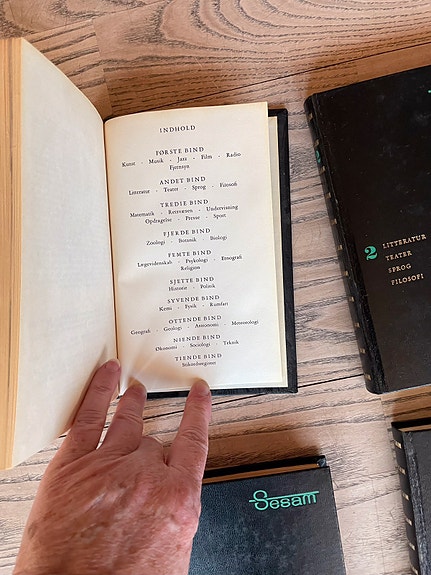 INDHOLD
FØRSTE BIND
Kunst · Musik · Jazz · Film · Radio
Fjernsyn
ANDET BIND
Litteratur · Teater · Sprog · Filosofi
TREDIE BIND
Matematik · Retsvæsen · Undervisning
Opdragelse · Presse · Sport
FJERDE BIND
Zoologi · Botanik · Biologi
FEMTE BIND
Lægevidenskab · Psykologi · Etnografi
Religion
SJETTE BIND
Historie · Politik
SYVENDE BIND
Kemi · Fysik · Rumfart
OTTENDE BIND
Geografi · Geologi · Astronomi · Meteorologi
NIENDE BIND
Økonomi · Sociologi · Teknik
TIENDE BIND
Stikordsregister
2
LITTERATUR
TEATER
SPROG
FILOSOFI
Sesam